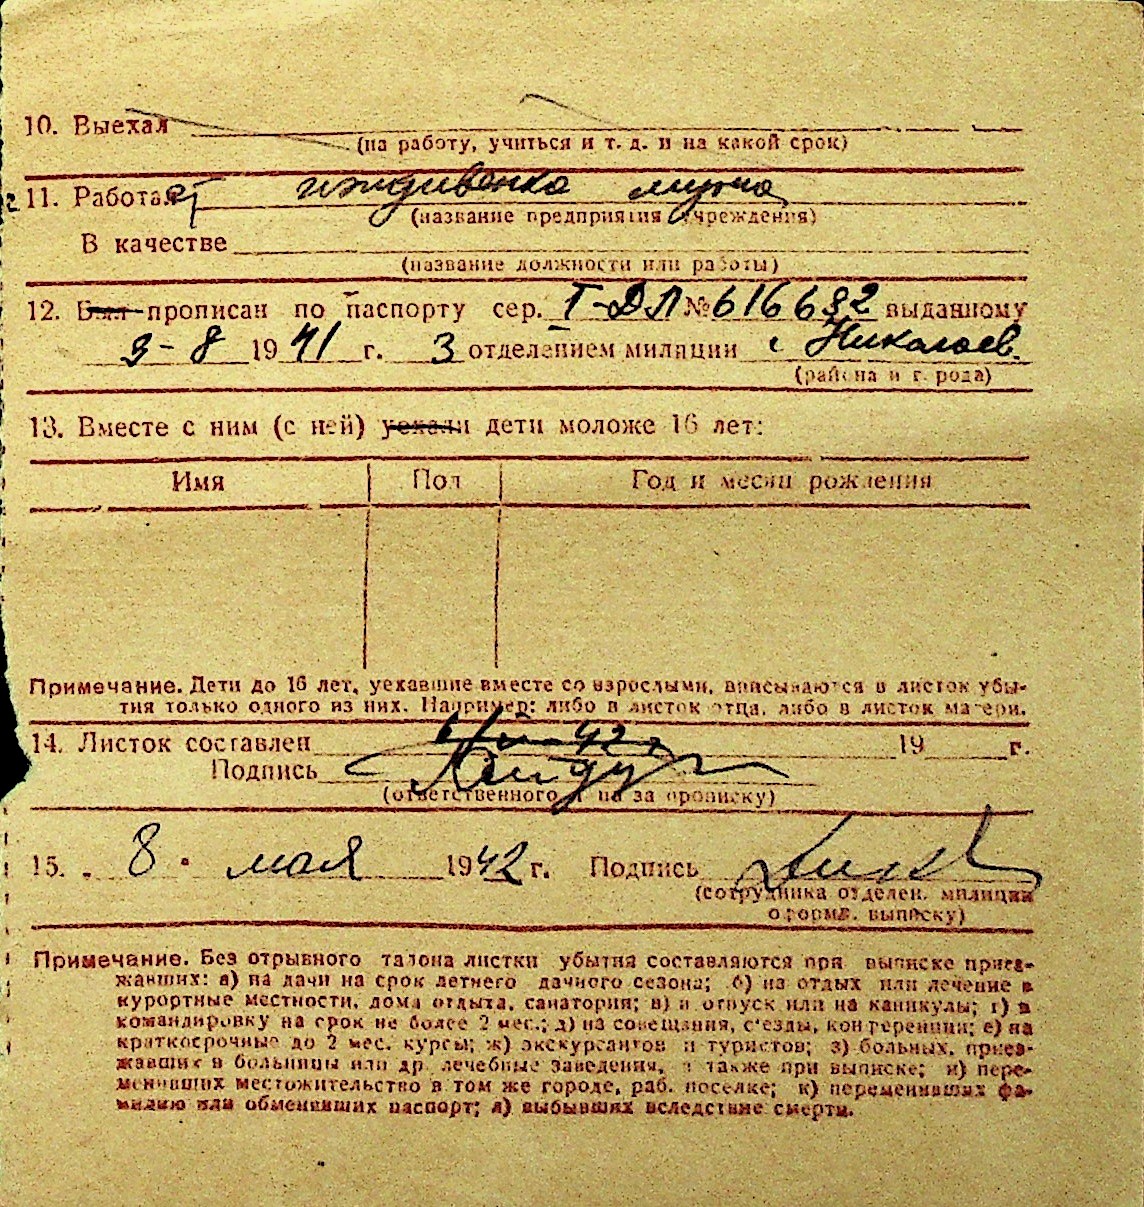 10. Выехал
(на работу, учиться и т. д. и на какой срок)
11. Работает иждивенка мужа
(название предприятия учреждения)
В качестве
(название должности или работы)
12. Был прописан по паспорту сер. I-ДЛ № 616632 выданному
9-8 1941 г. 3 отделением милиции г. Николаев.
(района и города)
13. Вместе с ним (с ней) уехали дети моложе 16 лет:
Имя Пол Год и месяц рождения
Примечание. Дети до 16 лет, уехавшие вместе со взрослыми, вписываются в листок убы-
тия только одного из них. Например: либо в листок отца, либо в листок матери.
14. Листок составлен 42 г. 19 г.
Подпись
(ответственного за прописку)
15. 8 мая 1942 г. Подпись
(сотрудника отделен. милиции
оформ. выписку)
Примечание. Без отрывного талона листки убытия составляются при выписке приез-
жавших: а) на дачи на срок летнего дачного сезона; б) на отдых или лечение в
курортные местности, дома отдыха, санатория; в) в отпуск или на каникулы; г) в
командировку на срок не более 2 мес.; д) на совещания, с'езды, конференции; е) на
краткосрочные до 2 мес. курсы; ж) экскурсантов и туристов; з) больных, приез-
жавших в больницы или др. лечебные заведения, а также при выписке; и) пере-
менивших местожительство в том же городе, раб. поселке; к) переменивших фа-
милию или обменивших паспорт; л) выбывших вследствие смерти.